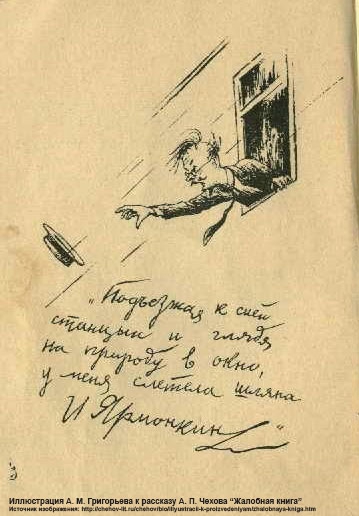 „Подъезжая к сией
станцыи и глядя
на природу в окно,
у меня слетела шляпа
И Ярмонкин"
Иллюстрация А. М. Григорьева к рассказу А. П. Чехова “Жалобная книга”
Источник изображения: http://chehov-lit.ru/chehov/bio/illyustracii-k-proizvedeniyam/zhalobnaya-kniga.htm